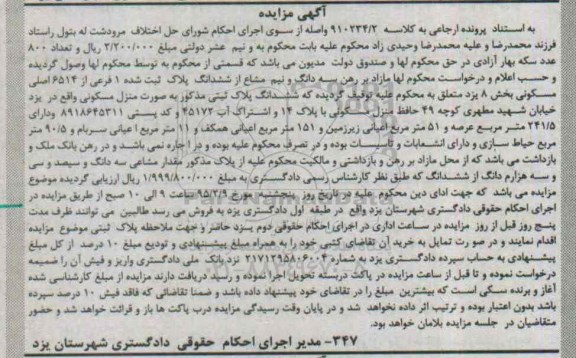 آگهی مزایده
به استناد پرونده ارجاعی به کلاسه ۹۱۰۲۳۴/۲ واصله از سوی اجرای احکام شورای حل اختلاف مرودشت له بتول راستاد
فرزند محمدرضا و علیه محمدرضا وحیدی زاد محکوم علیه بابت محکوم به و نیم عشر دولتی مبلغ ۲/۲۰۰/۰۰۰ ریال و تعداد ۸۰۰
عدد سکه بهار آزادی در حق محکوم لها و صندوق دولت مدیون می باشد که قسمتی از محکوم به توسط محکوم لها وصول گردیده
و حسب اعلام و درخواست محکوم لها مازاد بر رهن سه دانگ و نیم مشاع از ششدانگ پلاک ثبت شده ۱ فرعی از ۶۵۱۴ اصلی
مسکونی بخش ۸ یزد متعلق به محکوم علیه توقیف گردیده که ششدانگ پلاک ثبتی مذکور به صورت منزل مسکونی واقع در یزد
خیابان شهید مطهری کوچه ۴۹ حافظ منزل مسکونی با پلاک ۱۴ و اشتراک آب ۴۵۱۷۲ و کد پستی ۸۹۱۸۶۴۵۳۱۱ ودارای
۲۴۱/۵ متر مربع عرصه و ۵۱ متر مربع اعیانی زیرزمین و ۱۵۱ متر مربع اعیانی همکف و ۱۱ متر مربع اعیانی سربام و ۹۰/۵ متر
مربع حیاط سازی و دارای انشعابات و تاسیسات بوده و در تصرف محکوم علیه بوده و در اجاره نمی باشد و در رهن بانک ملک و
بازداشت می باشد که از محل مازاد بر رهن و بازداشتی و مالکیت محکوم علیه از پلاک مذکور مقدار مشاعی سه دانگ و سیصد و سی
و سه هزارم دانگ از ششدانگ که طبق نظر کارشناس رسمی دادگستری به مبلغ ۱/۹۹۹/۸۰۰/۰۰۰ ریال ارزیابی گردیده موضوع
مزایده می باشد که جهت ادای دین محکوم علیه در تاریخ روز پنجشنبه مورخ ۹۵/۲/۹ ساعت ۹ الی ۱۰ صبح از طریق مزایده در
اجرای احکام حقوقی دادگستری شهرستان یزد واقع در طبقه اول دادگستری یزد به فروش می رسد طالبین می توانند ظرف مدت
پنج روز قبل از روز مزایده در ساعات اداری در اجرای احکام حقوقی دوم یزد حاضر و جهت ملاحظه پلاک ثبتی موضوع مزایده
اقدام نمایند و در صورت تمایل به خرید آن تقاضای کتبی خود را به همراه مبلغ پیشنهادی و تودیع مبلغ ۱۰ درصد از کل مبلغ
پیشنهادی به حساب سپرده دادگستری یزد به شماره ۲۱۷۱۲۹۵۸۰۶۰۰۴ نزد بانک ملی دادگستری واریز و فیش آن را ضمیمه
درخواست نموده و تا قبل از ساعت مزایده در پاکت دربسته تحویل اجرا نموده و رسید دریافت دارند مزایده از مبلغ کارشناسی شده
آغاز و برنده کسی است که بیشترین مبلغ را در تقاضای خود پیشنهاد داده باشد و ضمنا تقاضائی که فاقد فیش ۱۰ درصد سپرده
باشد بدون اعتبار بوده و ترتیب اثر داده نخواهد شد و در پایان وقت رسیدگی مزایده درب پاکت ها باز و قرائت خواهد شد و حضور
متقاضیان در جلسه مزایده بلامان خواهد بود.
۳۴۷- مدیر اجرای احکام حقوقی دادگستری شهرستان یزد